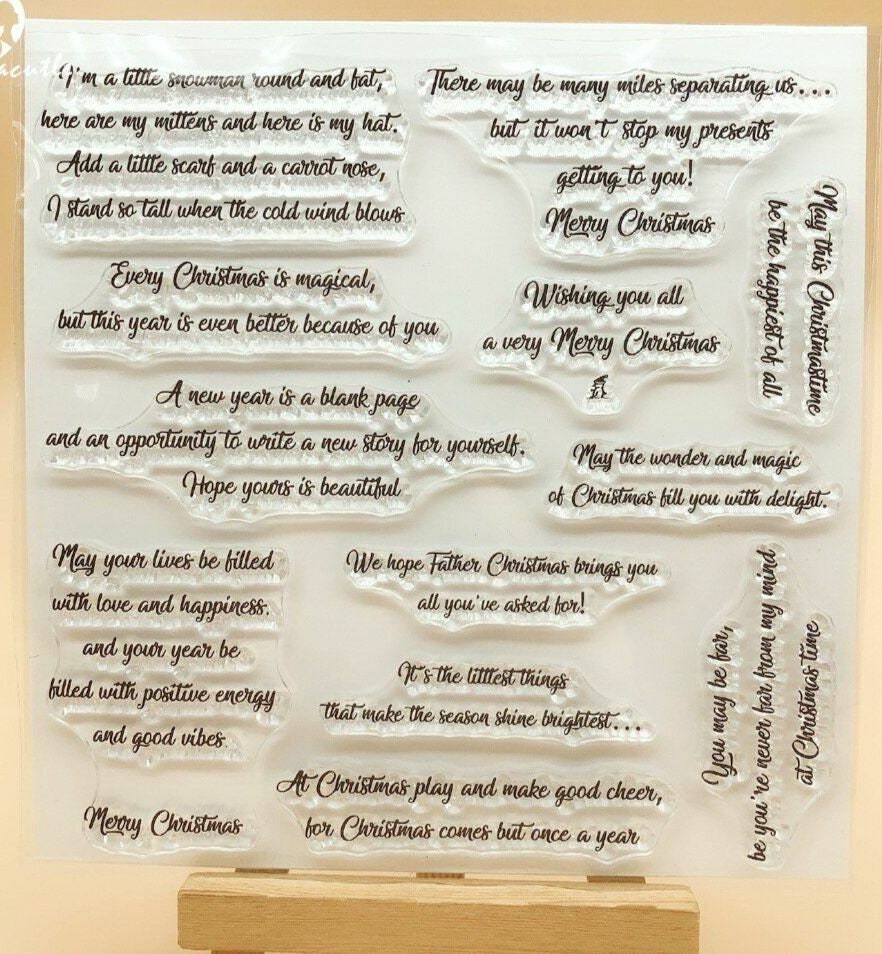 I'm a little snowman round and fat,
here are my mittens and here is my hat.
Add a little scarf and a carrot nose,
I stand so tall when the cold wind blows
There may be many miles separating us...
but it won't stop my presents
getting to you!
Merry Christmas
May this Christmastime
be the happiest of all
Every Christmas is magical,
but this year is even better because of you
Wishing you all
a very Merry Christmas
A new year is a blank page
and an opportunity to write a new story for yourself.
Hope yours is beautiful
May the wonder and magic
of Christmas fill you with delight.
May your lives be filled
with love and happiness.
and your year be
filled with positive energy
and good vibes.
Merry Christmas
We hope Father Christmas brings you
all you've asked for!
It's the litttest things
that make the season shine brightest...
At Christmas play and make good cheer,
for Christmas comes but once a year
You may be far,
be you're never far from my mind
at Christmas time